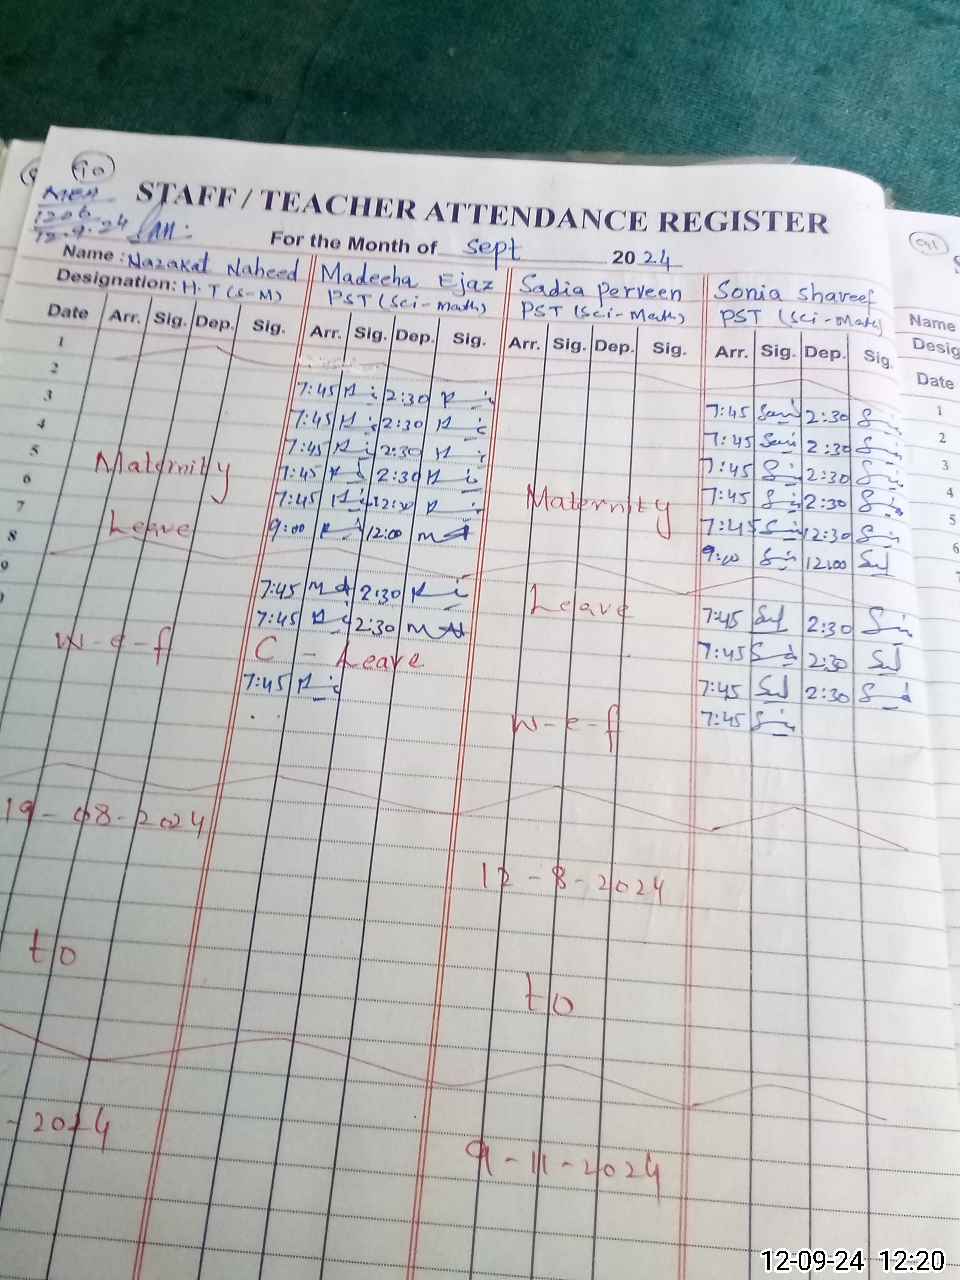 10
12.9.24
STAFF / TEACHER ATTENDANCE REGISTER
For the Month of Sept 2024
Name : Nazakat Naheed Madeeha Ejaz Sadia perveen Sonia shareef
Designation: H.T (S-M) PST (Sci-math) PST (Sci-Math) PST (Sci-Math)
Date Arr. Sig. Dep. Sig. Arr. Sig. Dep. Sig. Arr. Sig. Dep. Sig. Arr. Sig. Dep. Sig.
Name
Desig
Date
1
2
3
4
5
6
7
8
9
7:45 2:30
7:45 2:30
7:45 2:30
7:45 2:30
7:45 12:30
9:00 12:00
7:45 2:30
7:45 2:30
C - Leave
7:45
7:45 2:30
7:45 2:30
7:45 2:30
7:45 2:30
7:45 12:30
9:00 12:00
7:45 2:30
7:45 2:30
7:45 2:30
7:45
Maternity
Leave
w-e-f
19-08-2024
to
-2024
Maternity
Leave
w-e-f
12-8-2024
to
9-11-2024
1
2
3
4
5
6
12-09-24 12:20